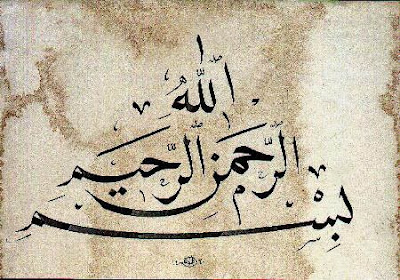 بِسْمِ
اللّٰهِ
الرَّحْمٰنِ الرَّحِيمِ